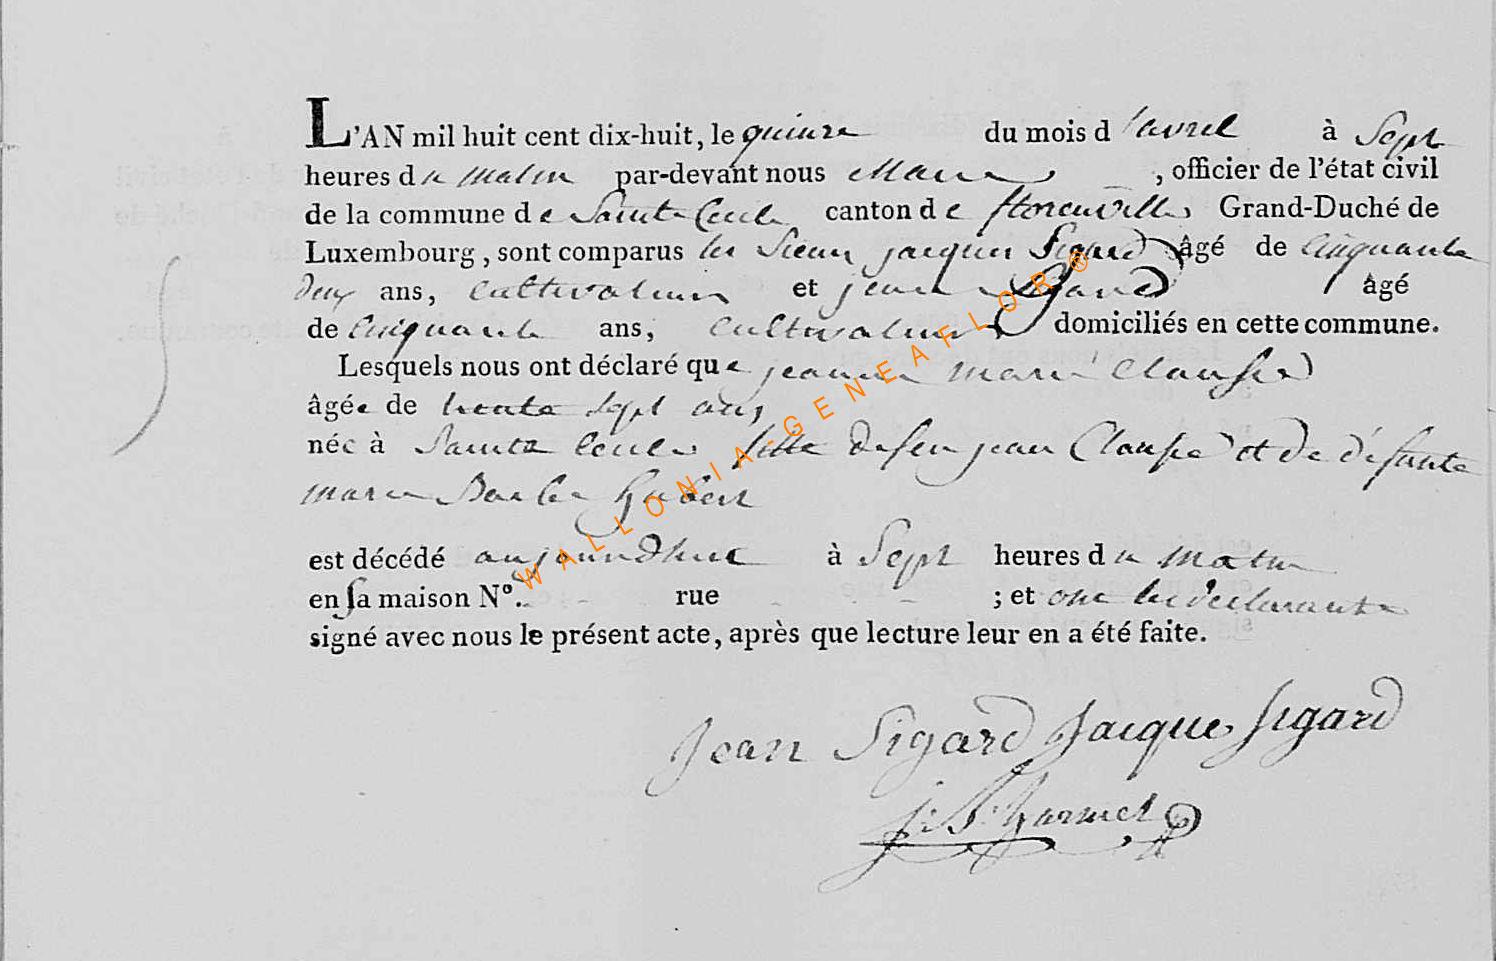 L'AN mil huit cent dix-huit, le quinze du mois d'avril à Sept
heures du matin par-devant nous Maire, officier de l'état civil
de la commune de Sainte Cecile canton de florenville Grand-Duché de
Luxembourg, sont comparus les Sieurs jacques Sigard âgé de cinquante
deux ans, cultivateur et jean Sigard âgé
de cinquante ans, cultivateur domiciliés en cette commune.
Lesquels nous ont déclaré que jeanne marie Clausse
âgée de trente sept ans
née à Sainte Cecile fille de feu jean Clausse et de défunte
marie Barbe hubert
est décédé aujourdhui à Sept heures du matin
en sa maison N°. rue ; et ont les déclarants
signé avec nous le présent acte, après que lecture leur en a été faite.
Jean Sigard Jacque Sigard
WALLONIA-GENEAFLOR®